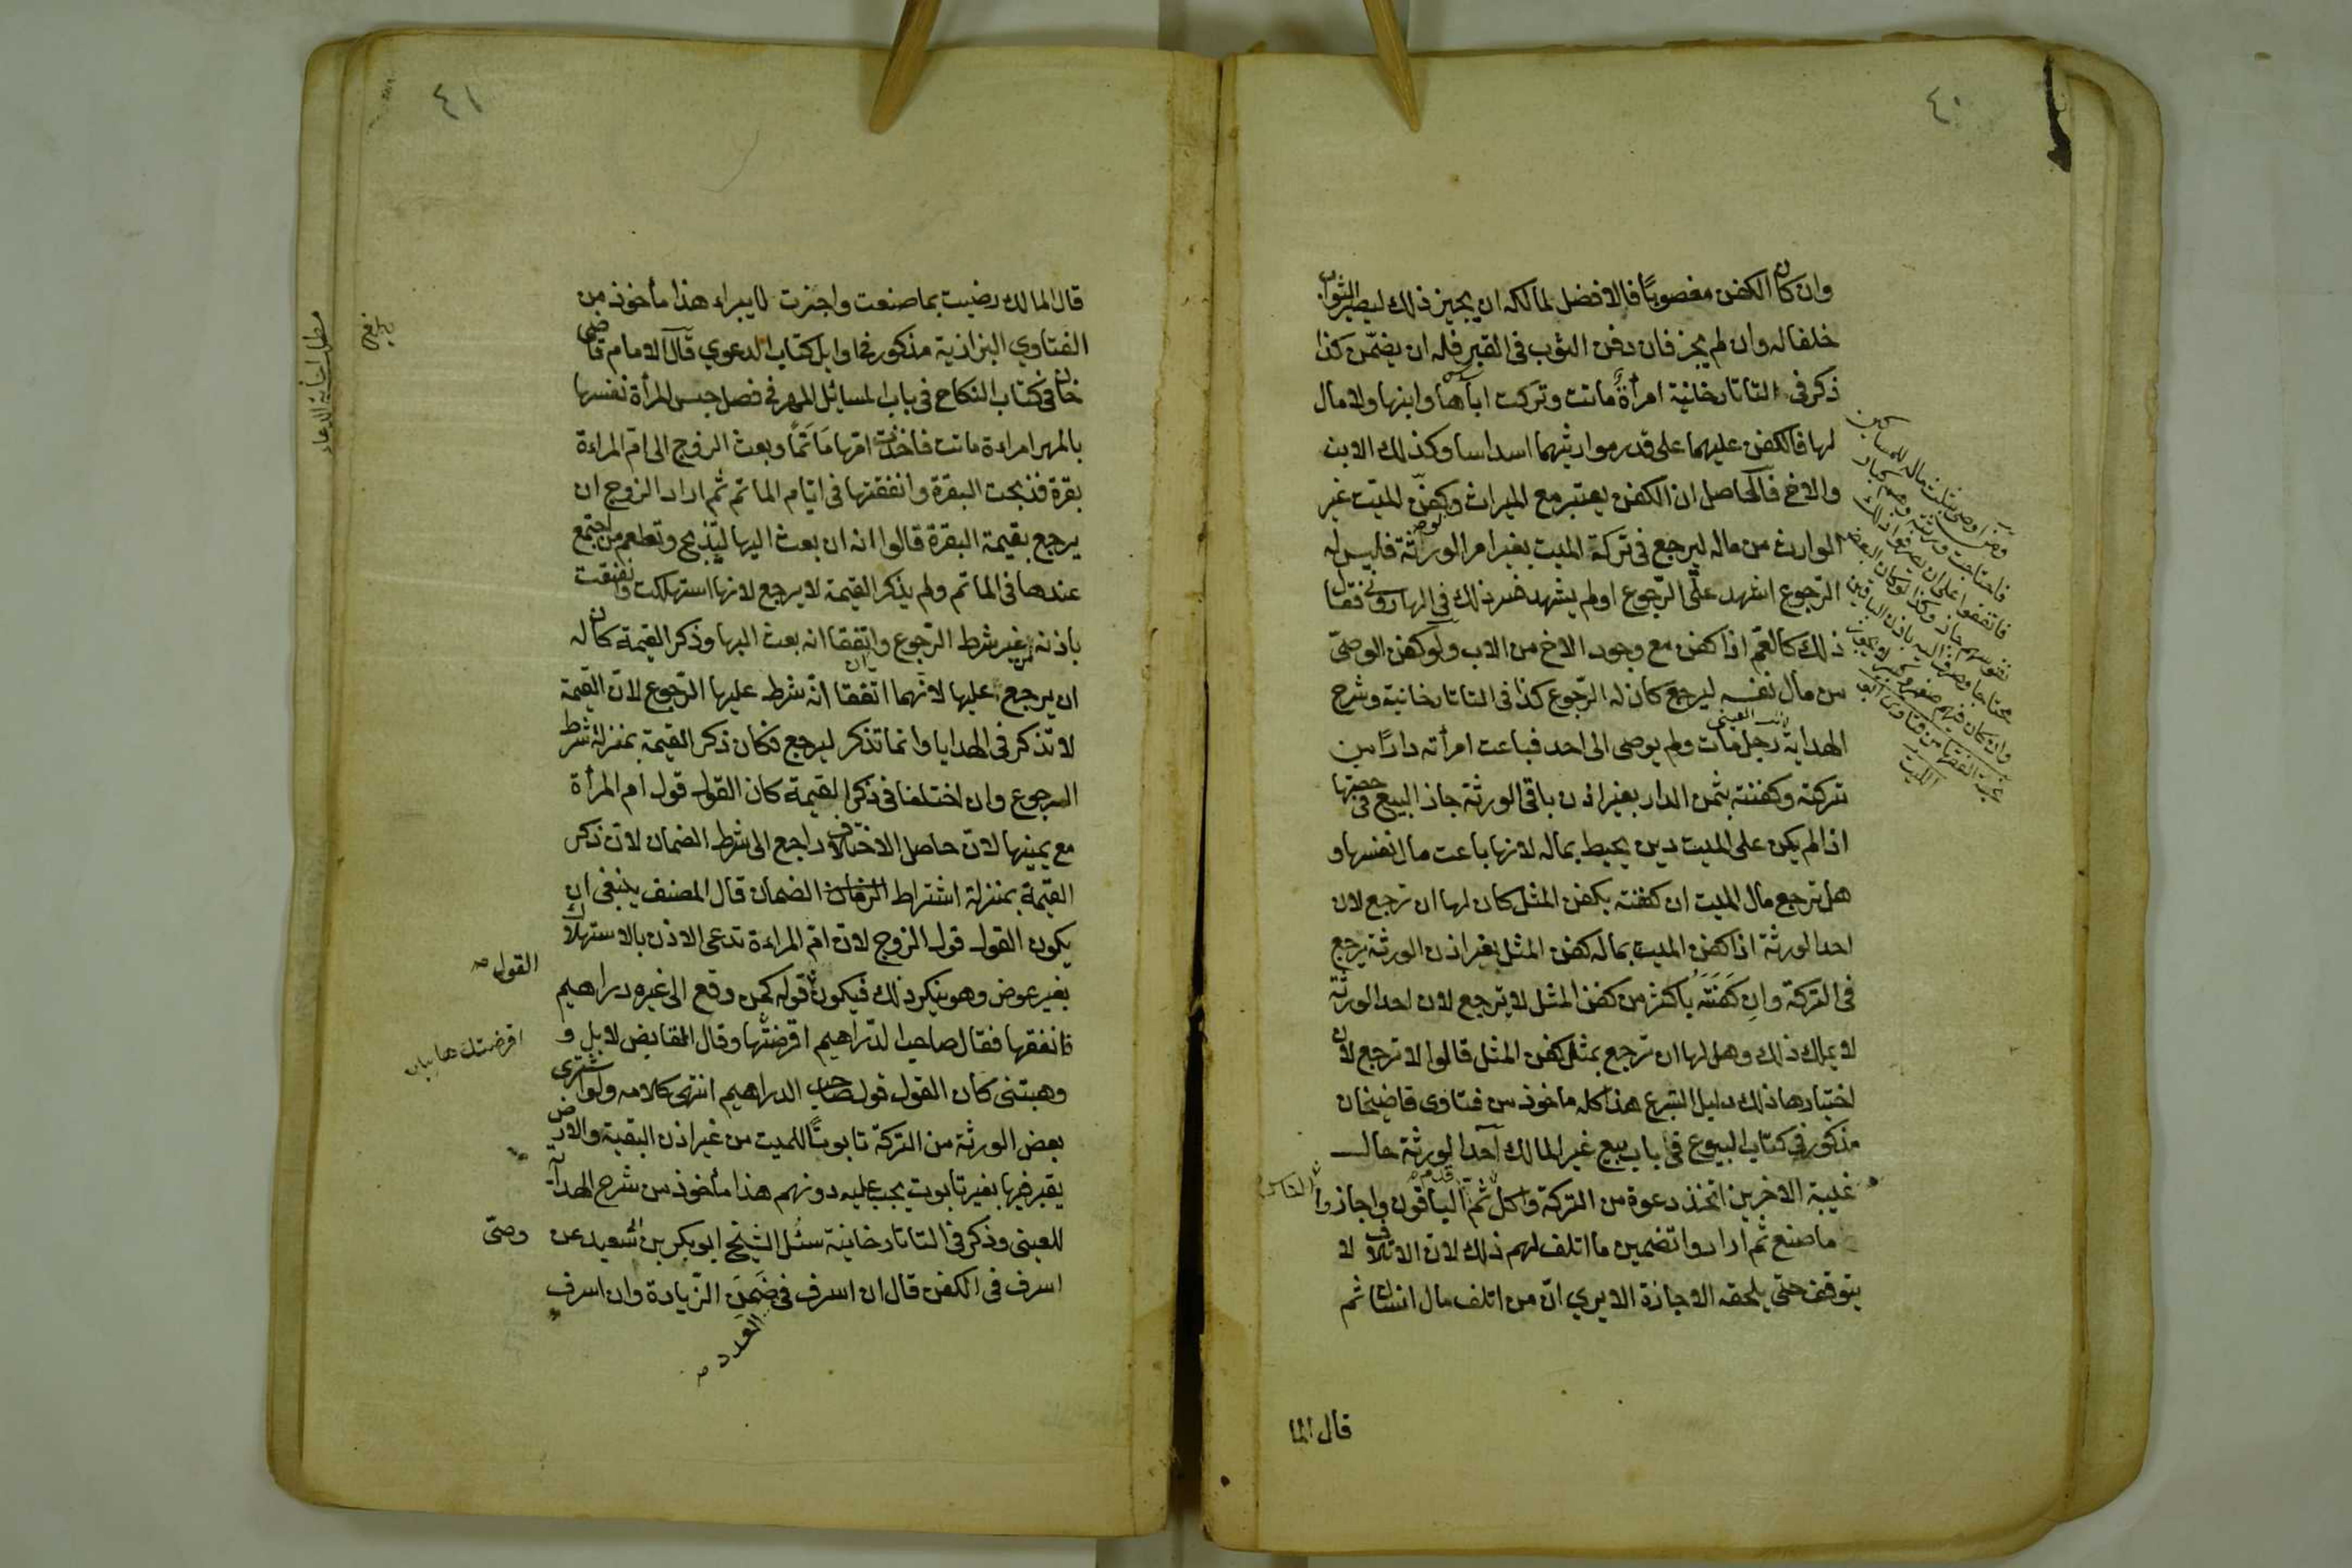 ٤٠
وان كان الكفن مغصوبًا فالافضل لمالكه ان يجيز ذلك ليصير الثواب
خلفا له وان لم يجز فان دفن الثوب فى القبر فله ان يضمّن كذا
ذكر فى التاتارخانية امرأة ماتت وتركت اباها وابنها ولا مال
لها فالكفن عليهما على قدر مواريثهما اسداسا وكذلك الابن
والاخ فالحاصل ان الكفن يعتبر مع الميراث وكفن الميت غير
الوارث من ماله ليرجع فى تركة الميت بغير امر الورثة فليس له
الرّجوع اشهد على الرّجوع اولم يشهد
ذلك كالعمّ اذا كفن مع وجود الاخ من الاب ولو كفن الوصىّ
من مال نفسه ليرجع كان له الرّجوع كذا فى التاتارخانية وشرح
الهداية رجل مات ولم يوصى الى احد فباعت امرأته دارًا من
للعينى
تركته وكفنته بثمن الدار بغير اذن باقى الورثة جاز البيع فى حصتها
اذا لم يكن على الميت دين يحيط بماله لانها باعت مال نفسها و
هل ترجع مال الميت ان كفنته بكفن المثل كان لها ان ترجع لان
احد الورثة اذا كفن الميت بماله كفن المثل بغير اذن الورثة يرجع
فى التركة وان كَفَنَتْه باكثر من كفن المثل لا يرجع لان احد الورثة
لا يملك ذلك وهل لها ان ترجع بمثل كفن المثل قالوا لا ترجع لان
اختيارها ذلك دليل التبرع هذا كله ماخوذ من فتاوى قاضيخان
مذكور فى كتاب البيوع فى باب بيع غير المالك احد الورثة حال
غيبة الاخرين اتخذ دعوة من التركة واكل ثم قدم الباقون واجازوا
ما صنع ثم ارادوا تضمين ما اتلف لهم ذلك لان الاتلاف لا
يتوقف حتى يلحقه الاجازة الا يرى انّ من اتلف مال انسان ثم
قال الما
٤١
قال المالك رضيت بما صنعت واجزت لا يبراء هذا مأخوذ من
الفتاوي البزازية مذكور فى اوايل كتاب الدعوي قال الامام قاضى
خان فى كتاب النكاح فى باب المسائل المهر فى فصل حبس المرأة نفسها
بالمهر امراءة ماتت فاخذت امّها مَاتَمًا وبعث الزوج الى امّ المراءة
بقرة فذبحت البقرة وانفقتها فى ايّام الماتم ثم اراد الزوج ان
يرجع بقيمة البقرة قالوا انه ان بعث اليها ليذبح وتطعم من اجتمع
عندها فى الماتم ولم يذكر القيمة لا يرجع لانها استهلكت وانفقت
باذنه من غير شرط الرّجوع وان اتفقا انه بعث اليها وذكر القيمة كان له
ان يرجع عليها لانهما اتفقا انّه شرط عليها الرّجوع لانّ القيمة
لا تذكر فى الهدايا وانما تذكر ليرجع فكان ذكر القيمة بمنزلة شرط
الرجوع وان اختلفا فى ذكر القيمة كان القول قول ام المرأة
مع يمينها لانّ حاصل الاختلاف راجع الى شرط الضمان لانّ ذكر
القيمة بمنزلة اشتراط الضمان قال المصنف ينبغى ان
يكون القول قول الزوج لانّ امّ المراءة تدعى الاذن بالاستهلاك
القول
بغير عوض وهو ينكر ذلك فيكون قوله كمن دفع الى غيره دراهيم
فانفقها فقال صاحب الدّراهيم اقرضتها وقال القابض لا بل و
اقرضتكها
وهبتنى كان القول قول صاحب الدراهيم انتهى كلامه ولو اشترى
بعض الورثة من التركة تابوتًا للميت من غير اذن البقية والارض
يقبر فيها بغير تابوت يجب عليه دونهم هذا مأخوذ من شرح الهداية
للعينى وذكر فى التاتارخانية سئل الشيخ ابو بكر بن سعيد عن
وصىّ
اسرف فى الكفن قال ان اسرف فى ضَمَن الزّيادة وان اسرف
العدد